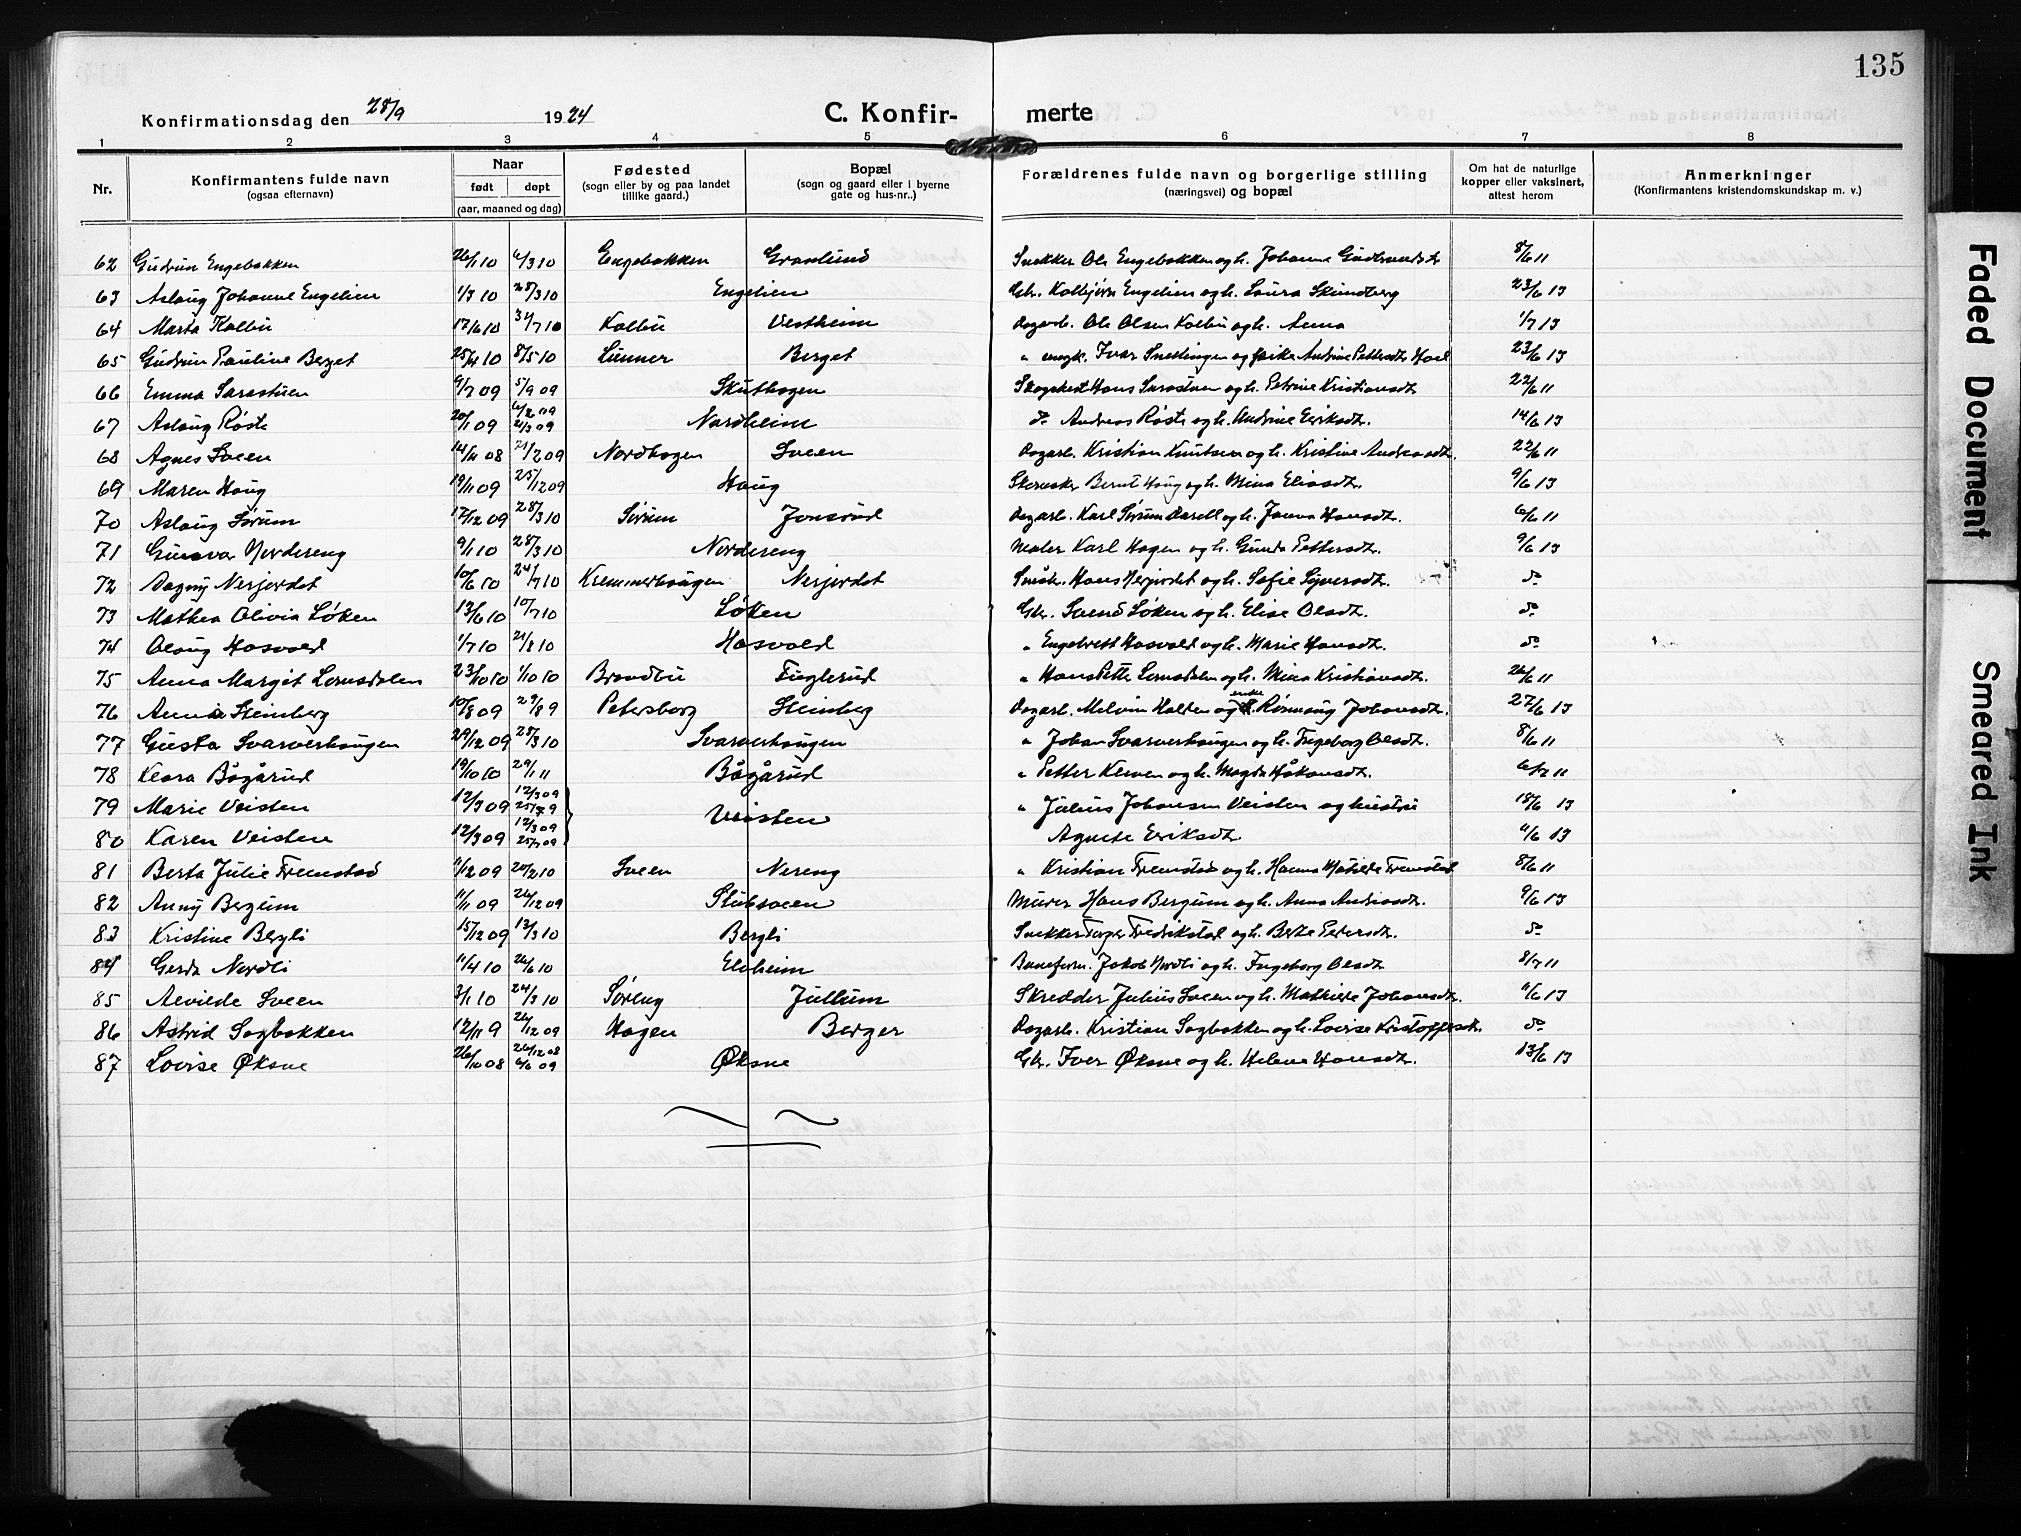 135
Konfirmationsdag den 28/9 1924 C. Konfirmerte
1 2 3 4 5 6 7 8
Nr. Konfirmantens fulde navn (ogsaa efternavn) Naar født døpt (aar, maaned og dag) Fødested (sogn eller by og paa landet tillike gaard.) Bopæl (sogn og gaard eller i byerne gate og hus-nr..) Forældrenes fulde navn og borgerlige stilling (næringsvei) og bopæl Om hat de naturlige kopper eller vaksinert, attest herom Anmerkninger (Konfirmantens kristendomskundskap m. v.)
62 Gudrun Engebakken 26/1 10 6/3 10 Engebakken Granlund Snekker Ole Engebakken og h. Johanne Gudbrandsdtr 8/6 11
63 Aslaug Johanne Engelien 1/3 10 28/3 10 Engelien Gbr. Kolbjørn Engelien og h. Laura Skundberg 23/6 13
64 Marta Kolbu 17/6 10 31/7 10 Kolbu Vestheim Dagarb. Ole Olsen Kolbu og h. Anna 1/7 13
65 Gudrun Pauline Berget 25/4 10 8/5 10 Lunner Berget " ungk. Ivar Snellingen og pike Andrine Pettersdtr Hoel 23/6 13
66 Emma Sarastuen 9/7 09 5/9 09 Skuthagen Hans Sarastuen og h. Petrine Kristiansdtr 22/6 11
67 Aslaug Røste 20/1 09 6/2 09 21/3 09 Nordheim do Andreas Røste og h. Andrine Eriksdtr. 14/6 13
68 Agnes Sveen 14/11 08 21/2 09 Nordhagen Sveen Dagarb. Kristian Knutsen og h. Kristine Andreasdtr. 22/6 11
69 Maren Haug 19/11 09 25/12 09 Haug Bernt Haug og h. Mina Eliasdtr. 9/6 13
70 Aslaug Sørum 17/12 09 28/3 10 Sørum Jonsrud Dagarb. Karl Sørum og h. Janna Hansdtr. 6/6 11
71 Gunvor Nordereng 9/1 10 28/3 10 Nordereng Maler Karl Hagen og h. Gunda Pettersdtr. 9/6 13
72 Dagny Nerjordet 10/6 10 24/7 10 Kremmerhaugen Nerjordet Småbr. Hans Nerjordet og h. Sofie Syversdtr. do
73 Mathea Olivia Løken 13/6 10 10/7 10 Løken Gbr. Svend Løken og h. Elise Olsdtr. do
74 Olaug Hasvold 1/7 10 21/8 10 Hasvold " Engebrett Hasvold og h. Marie Hansdtr. do
75 Anna Margit Lomsdalen 23/10 10 1/10 10 Brandbu Fuglerud " Hans Petter Lomsdalen og h. Mina Kristiansdtr. 26/6 11
76 Anna Steinberg 10/8 09 29/8 9 Petersborg Steinberg Dagarb. Melvin Halden og enke Rønnaug Johansdtr. 27/6 13
77 Gusta Svarverhaugen 29/12 09 28/3 10 Svarverhaugen " Johan Svarverhaugen og h. Ingeborg Olsdtr. 8/6 11
78 Klara Bågårud 19/10 10 29/1 11 Bågårud " Petter Kleven og h. Magda Håkonsdtr. 6/7 11
79 Marie Veisten 12/3 09 12/3 09 25/7 9 Veisten " Julius Johansen Veisten og hustru 18/6 13
80 Karen Veisten 12/3 09 12/3 09 25/7 09 Agnete Eriksdtr. 11/6 13
81 Berta Julie Fremstad 11/12 09 20/2 10 Sveen Nereng " Kristian Fremstad og h. Hanna Matilde Fremstad 8/6 11
82 Anny Bergum 11/11 09 26/12 09 Stubsveen Murer Hans Bergum og h. Anna Andreasdtr. 9/6 13
83 Kristine Bergli 15/12 09 13/3 10 Bergli Snekker Torger Fredrikstad og h. Berte Petersdtr. do
84 Gerda Nordli 11/4 10 26/6 10 Elvheim Baneform. Jakob Nordli og h. Ingeborg Olsdtr. 8/7 11
85 Alvilde Sveen 3/1 10 24/3 10 Søreng Jullum Skredder Julius Sveen og h. Mathilde Johansdtr. 11/6 13
86 Astrid Sagbakken 12/11 9 26/12 09 Hagen Berger Dagarb. Kristian Sagbakken og h. Lovise Kristoffersdtr. do
87 Lovise Øksne 26/10 08 26/12 08 6/6 09 Øksne Gbr. Iver Øksne og h. Helene Hansdtr. 13/6 13
Faded Document
Smeared Ink